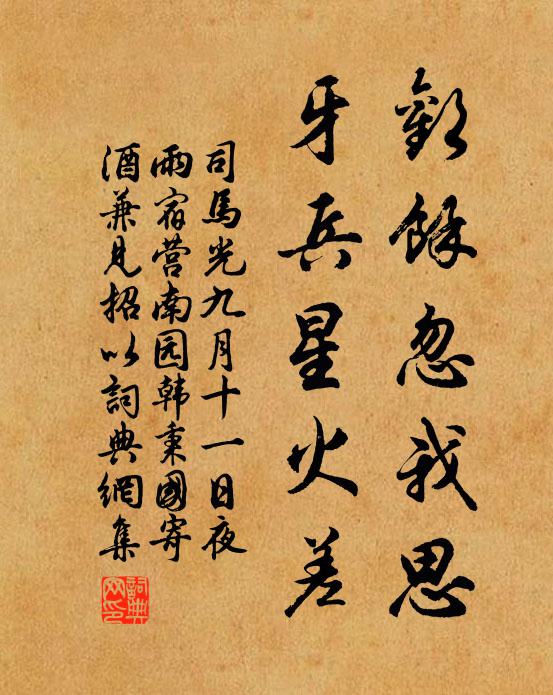 歡餘忽我思
牙兵星火差
司馬光九月十一日夜
雨宿营南园韩秉國寄
酒兼見招以詞典網集
詞典网印